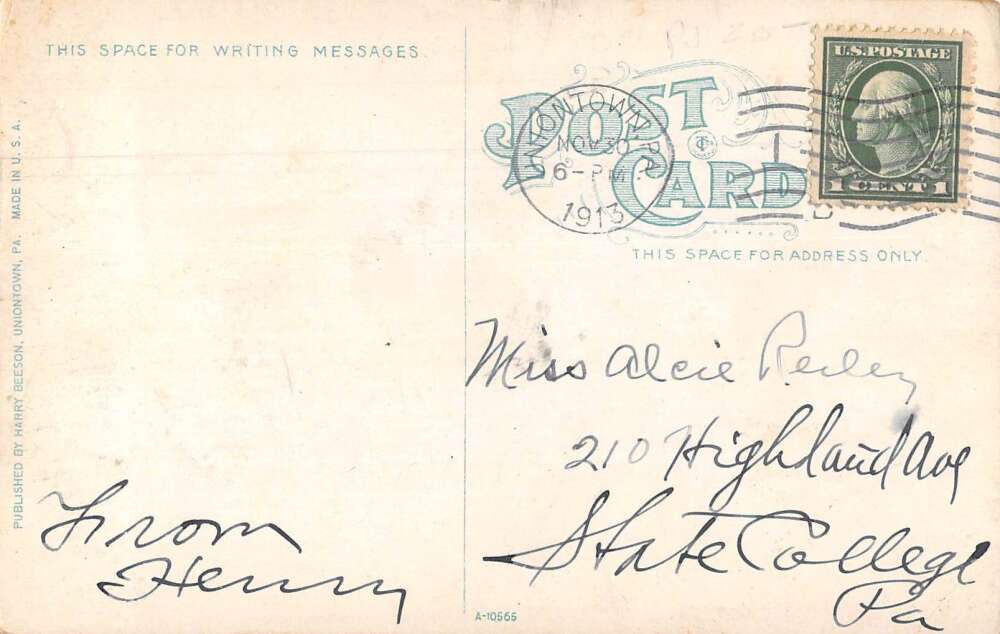 THIS SPACE FOR WRITING MESSAGES.
POST
CARD
UNIONTOWN, PA.
NOV 30
6-PM
1913
U.S. POSTAGE
1 CENT 1
THIS SPACE FOR ADDRESS ONLY.
PUBLISHED BY HARRY BEESON, UNIONTOWN, PA. MADE IN U. S. A.
Miss Alcie
210 Highland Ave
State College
Pa
From
Henry
A-10565